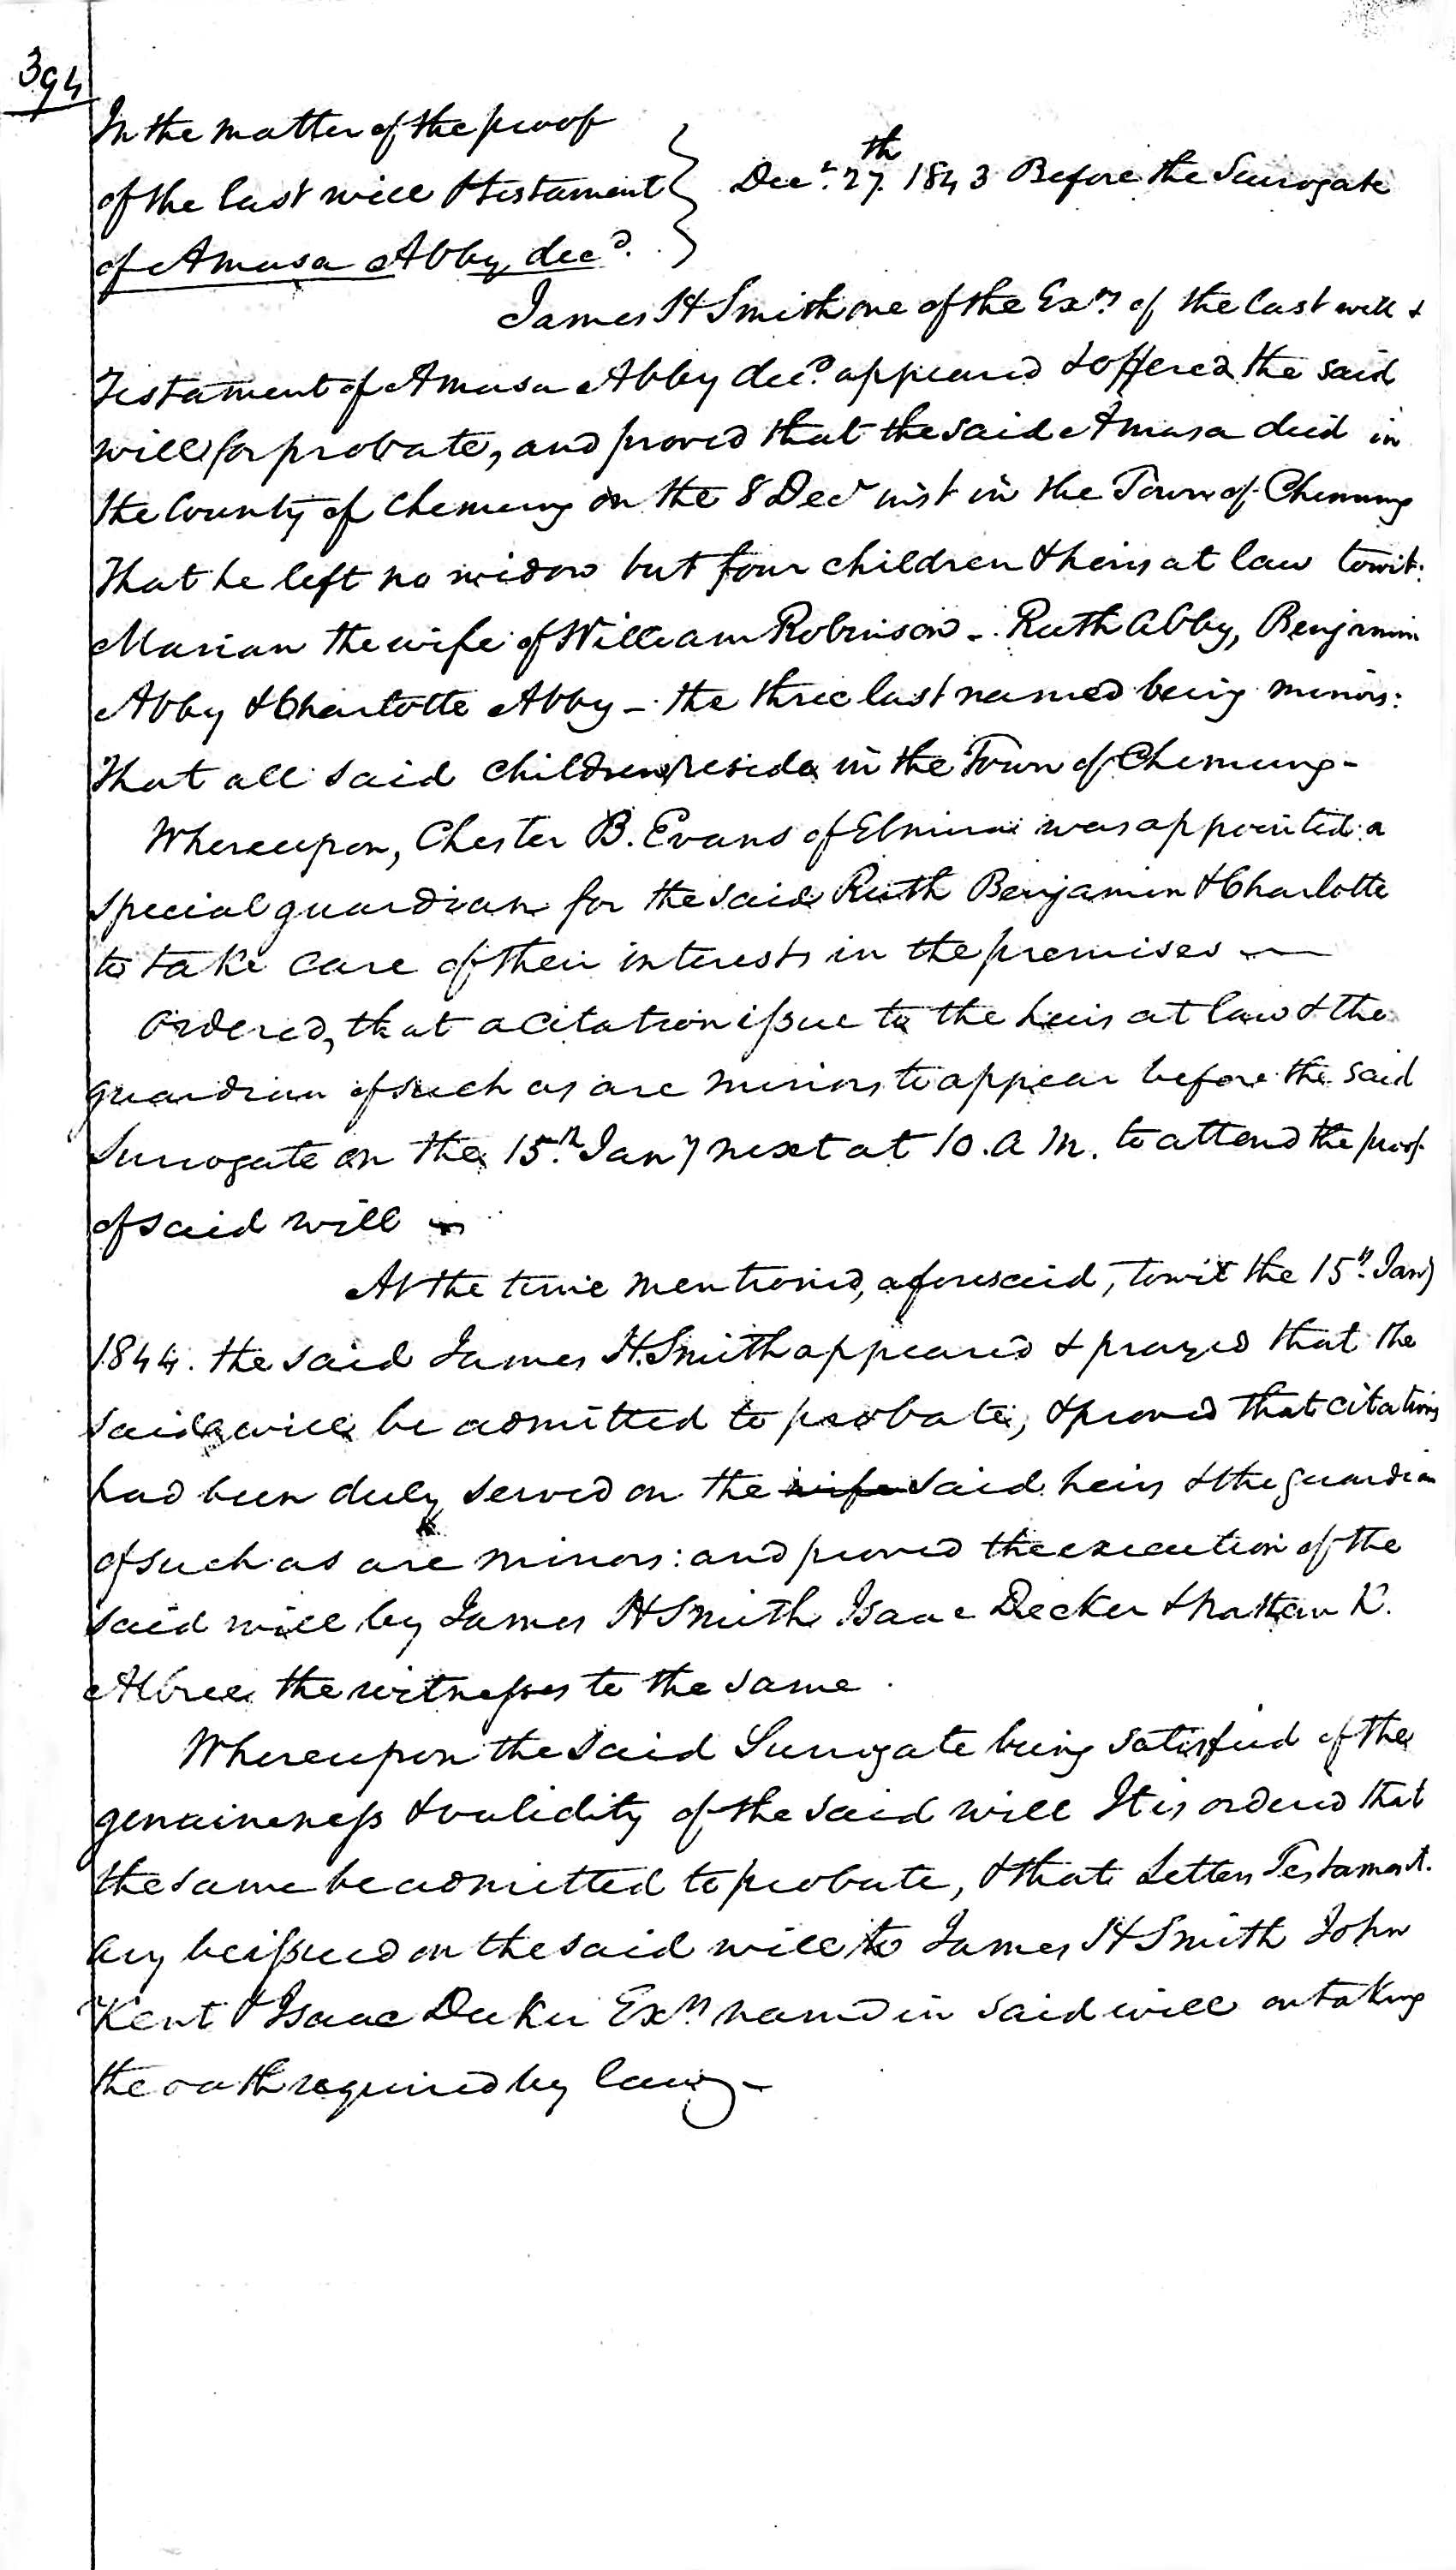 394
In the matter of the proof
of the last will & testament
of Amasa Abby, decd.
Decr. 27th 1843 Before the Surrogate
James H Smith one of the Exrs of the last will &
Testament of Amasa Abby decd. appeared & offered the said
will for probate, and proved that the said Amasa died in
the County of Chemung on the 8 Decr inst in the Town of Chemung
That he left no widow but four children & heirs at law towit:
Marian the wife of William Robinson - Ruth Abby, Benjamin
Abby & Charlotte Abby - the three last named being minors:
That all said children reside in the Town of Chemung -
Whereupon, Chester B. Evans of Elmira was appointed a
special guardian for the said Ruth Benjamin & Charlotte
to take care of their interests in the premises —
Ordered, that a citation issue to the heirs at law & the
guardian of such as are minors to appear before the said
Surrogate on the 15th Jany next at 10. A M. to attend the proof
of said will
At the time mentioned, aforesaid, towit the 15th. Jany
1844. the said James H. Smith appeared & prayed that the
said will be admitted to probate, & proved that citations
had been duly served on the wife said heirs & the guardian
of such as are minors: and proved the execution of the
said will by James H Smith Isaac Decker & K.
the witnesses to the same.
Whereupon the said Surrogate being satisfied of the
genuineness & validity of the said will It is ordered that
the same be admitted to probate, & that Letters Testament.
ary be issued on the said will to James H Smith John
Kent & Isaac Decker Exrs named in said will on taking
the oath required by law -